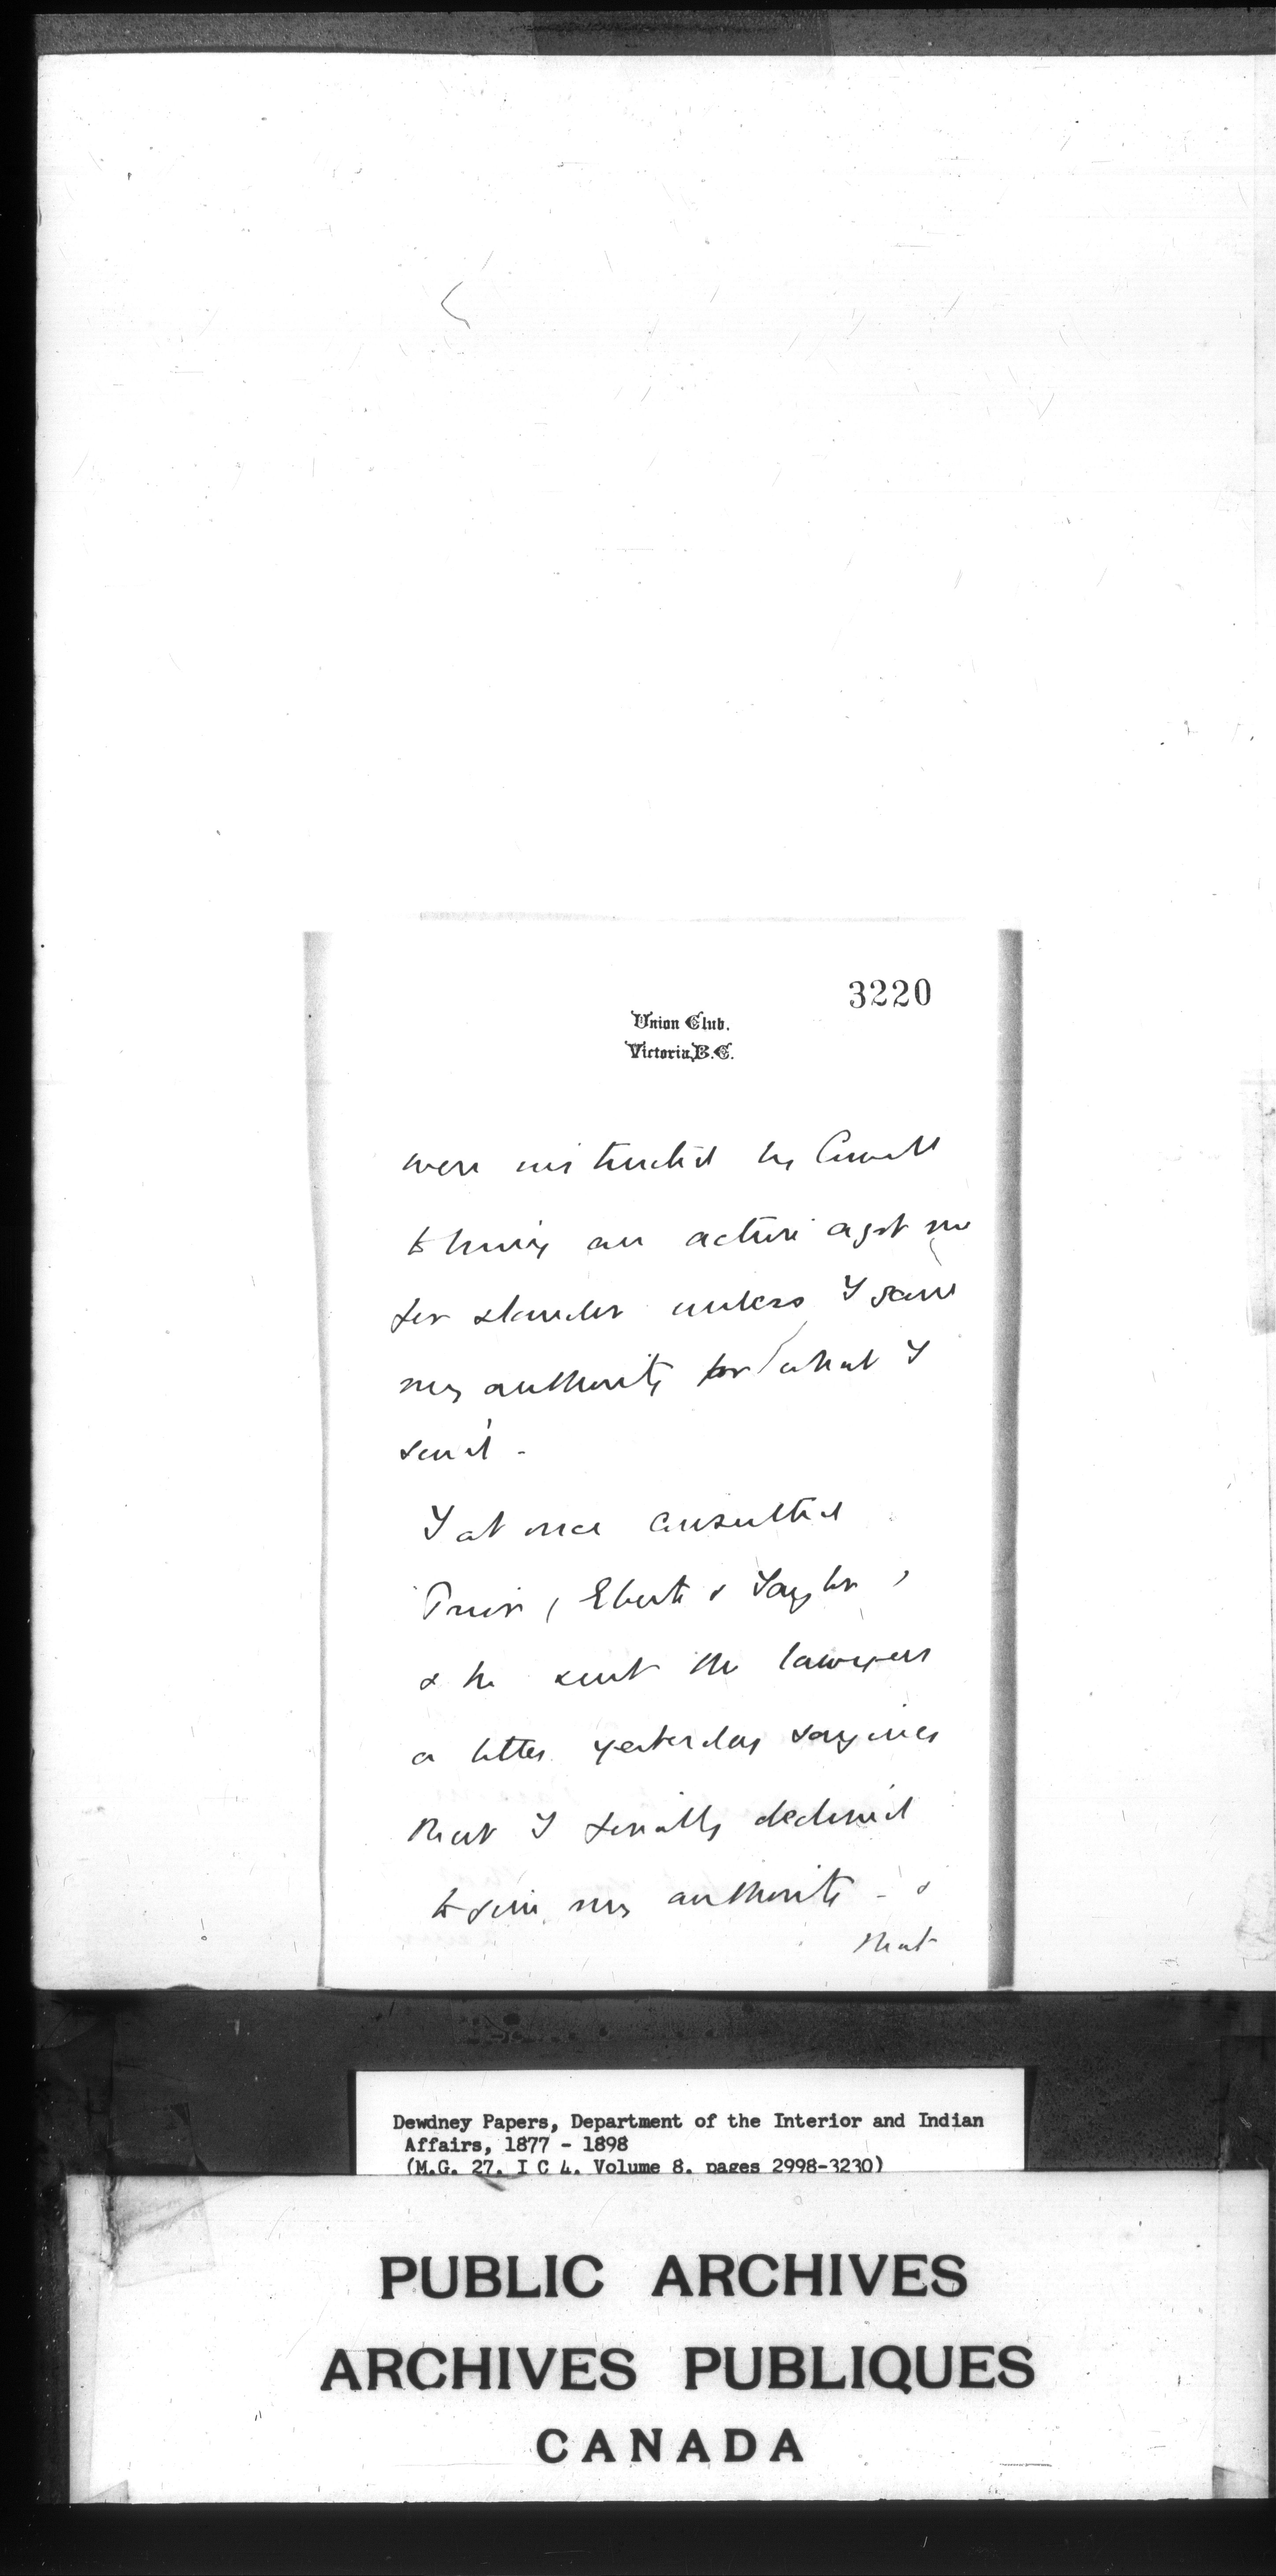 3220
Union Club.
Victoria, B.C.
were instructed by
to bring an action agst me
for slander unless I gave
my authority for what I
said -
I at once consulted
Eberts & Taylor,
& he sent the lawyers
a letter yesterday saying
that I finally declined
to give my authority - &
that
Dewdney Papers, Department of the Interior and Indian
Affairs, 1877 - 1898
(M.G. 27, I C 4, Volume 8, pages 2998-3230)
PUBLIC ARCHIVES
ARCHIVES PUBLIQUES
CANADA